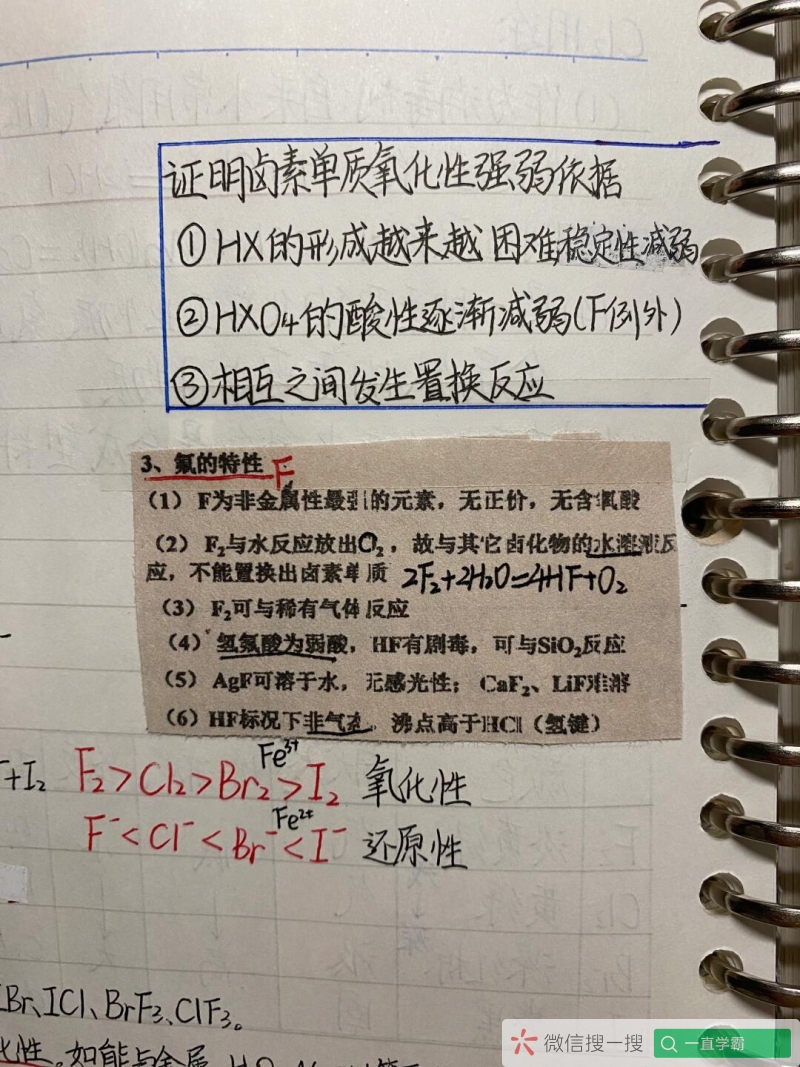 证明卤素单质氧化性强弱依据
①HX的形成越来越困难稳定性减弱
②HXO4的酸性逐渐减弱(F例外)
③相互之间发生置换反应
3、氟的特性 F
（1）F为非金属性最强的元素，无正价，无含氧酸
（2）F₂与水反应放出O₂，故与其它卤化物的水溶液反
应，不能置换出卤素单质 2F₂+2H₂O=4HF+O₂
（3）F₂可与稀有气体反应
（4）氢氟酸为弱酸，HF有剧毒，可与SiO₂反应
（5）AgF可溶于水，无感光性；CaF₂、LiF难溶
（6）HF标况下非气态，沸点高于HCl（氢键）
Fe³⁺
+I₂ F₂>Cl₂>Br₂>I₂ 氧化性
Fe²⁺
F⁻<Cl⁻<Br⁻<I⁻ 还原性
IBr、ICl、BrF₃、ClF₃。
化性。如能与金属
微信搜一搜 一直学霸